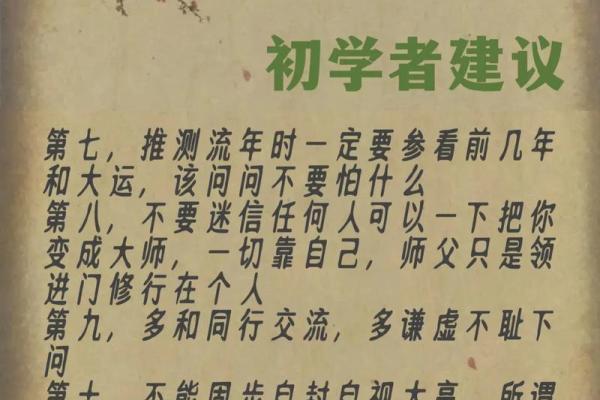 初学者建议
第七，推测流年时一定要参看前几年
和大运，该问问不要怕什么
第八，不要迷信任何人可以一下把你
变成大师，一切靠自己，师父只是领
进门修行在个人
第九，多和同行交流，多谦虚不耻下
问
第十，不能固步自封自视太高，所谓